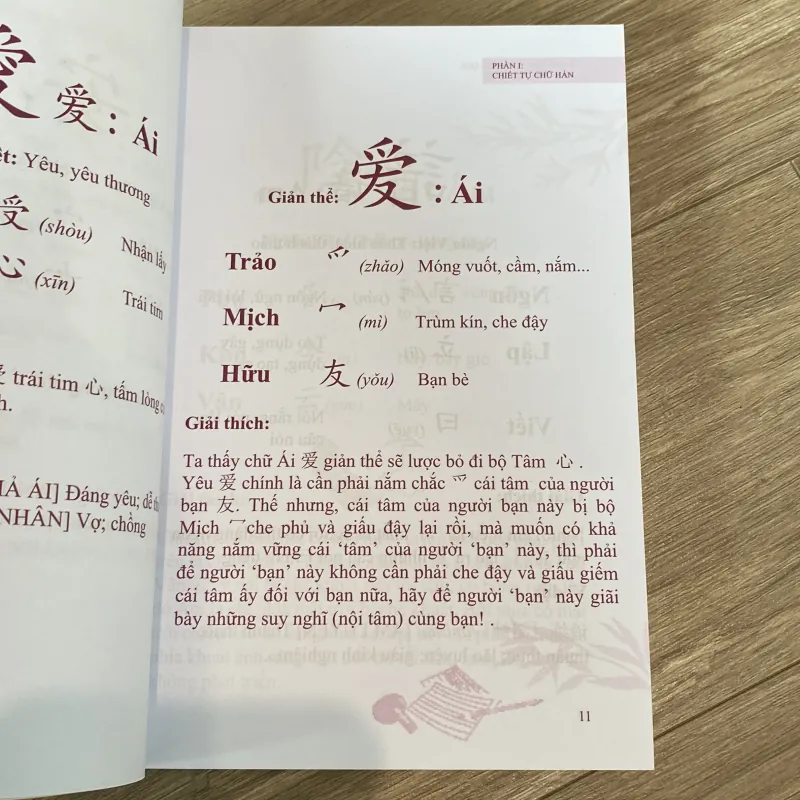 爱 爱: Ái
ệt: Yêu, yêu thương
受 (shòu) Nhận lấy
心 (xīn) Trái tim
trái tim 心, tấm lòng
h.
Ả ÁI] Đáng yêu; dễ
NHÂN] Vợ; chồng
PHẦN I:
CHIẾT TỰ CHỮ HÁN
Giản thể: 爱 : Ái
Trảo 爫 (zhǎo) Móng vuốt, cầm, nắm...
Mịch 冖 (mì) Trùm kín, che đậy
Hữu 友 (yǒu) Bạn bè
Giải thích:
Ta thấy chữ Ái 爱 giản thể sẽ lược bỏ đi bộ Tâm 心 .
Yêu 爱 chính là cần phải nắm chắc 爫 cái tâm của người
bạn 友. Thế nhưng, cái tâm của người bạn này bị bộ
Mịch 冖che phủ và giấu đậy lại rồi, mà muốn có khả
năng nắm vững cái ‘tâm’ của người ‘bạn’ này, thì phải
để người ‘bạn’ này không cần phải che đậy và giấu giếm
cái tâm ấy đối với bạn nữa, hãy để người ‘bạn’ này giãi
bày những suy nghĩ (nội tâm) cùng bạn! .
11